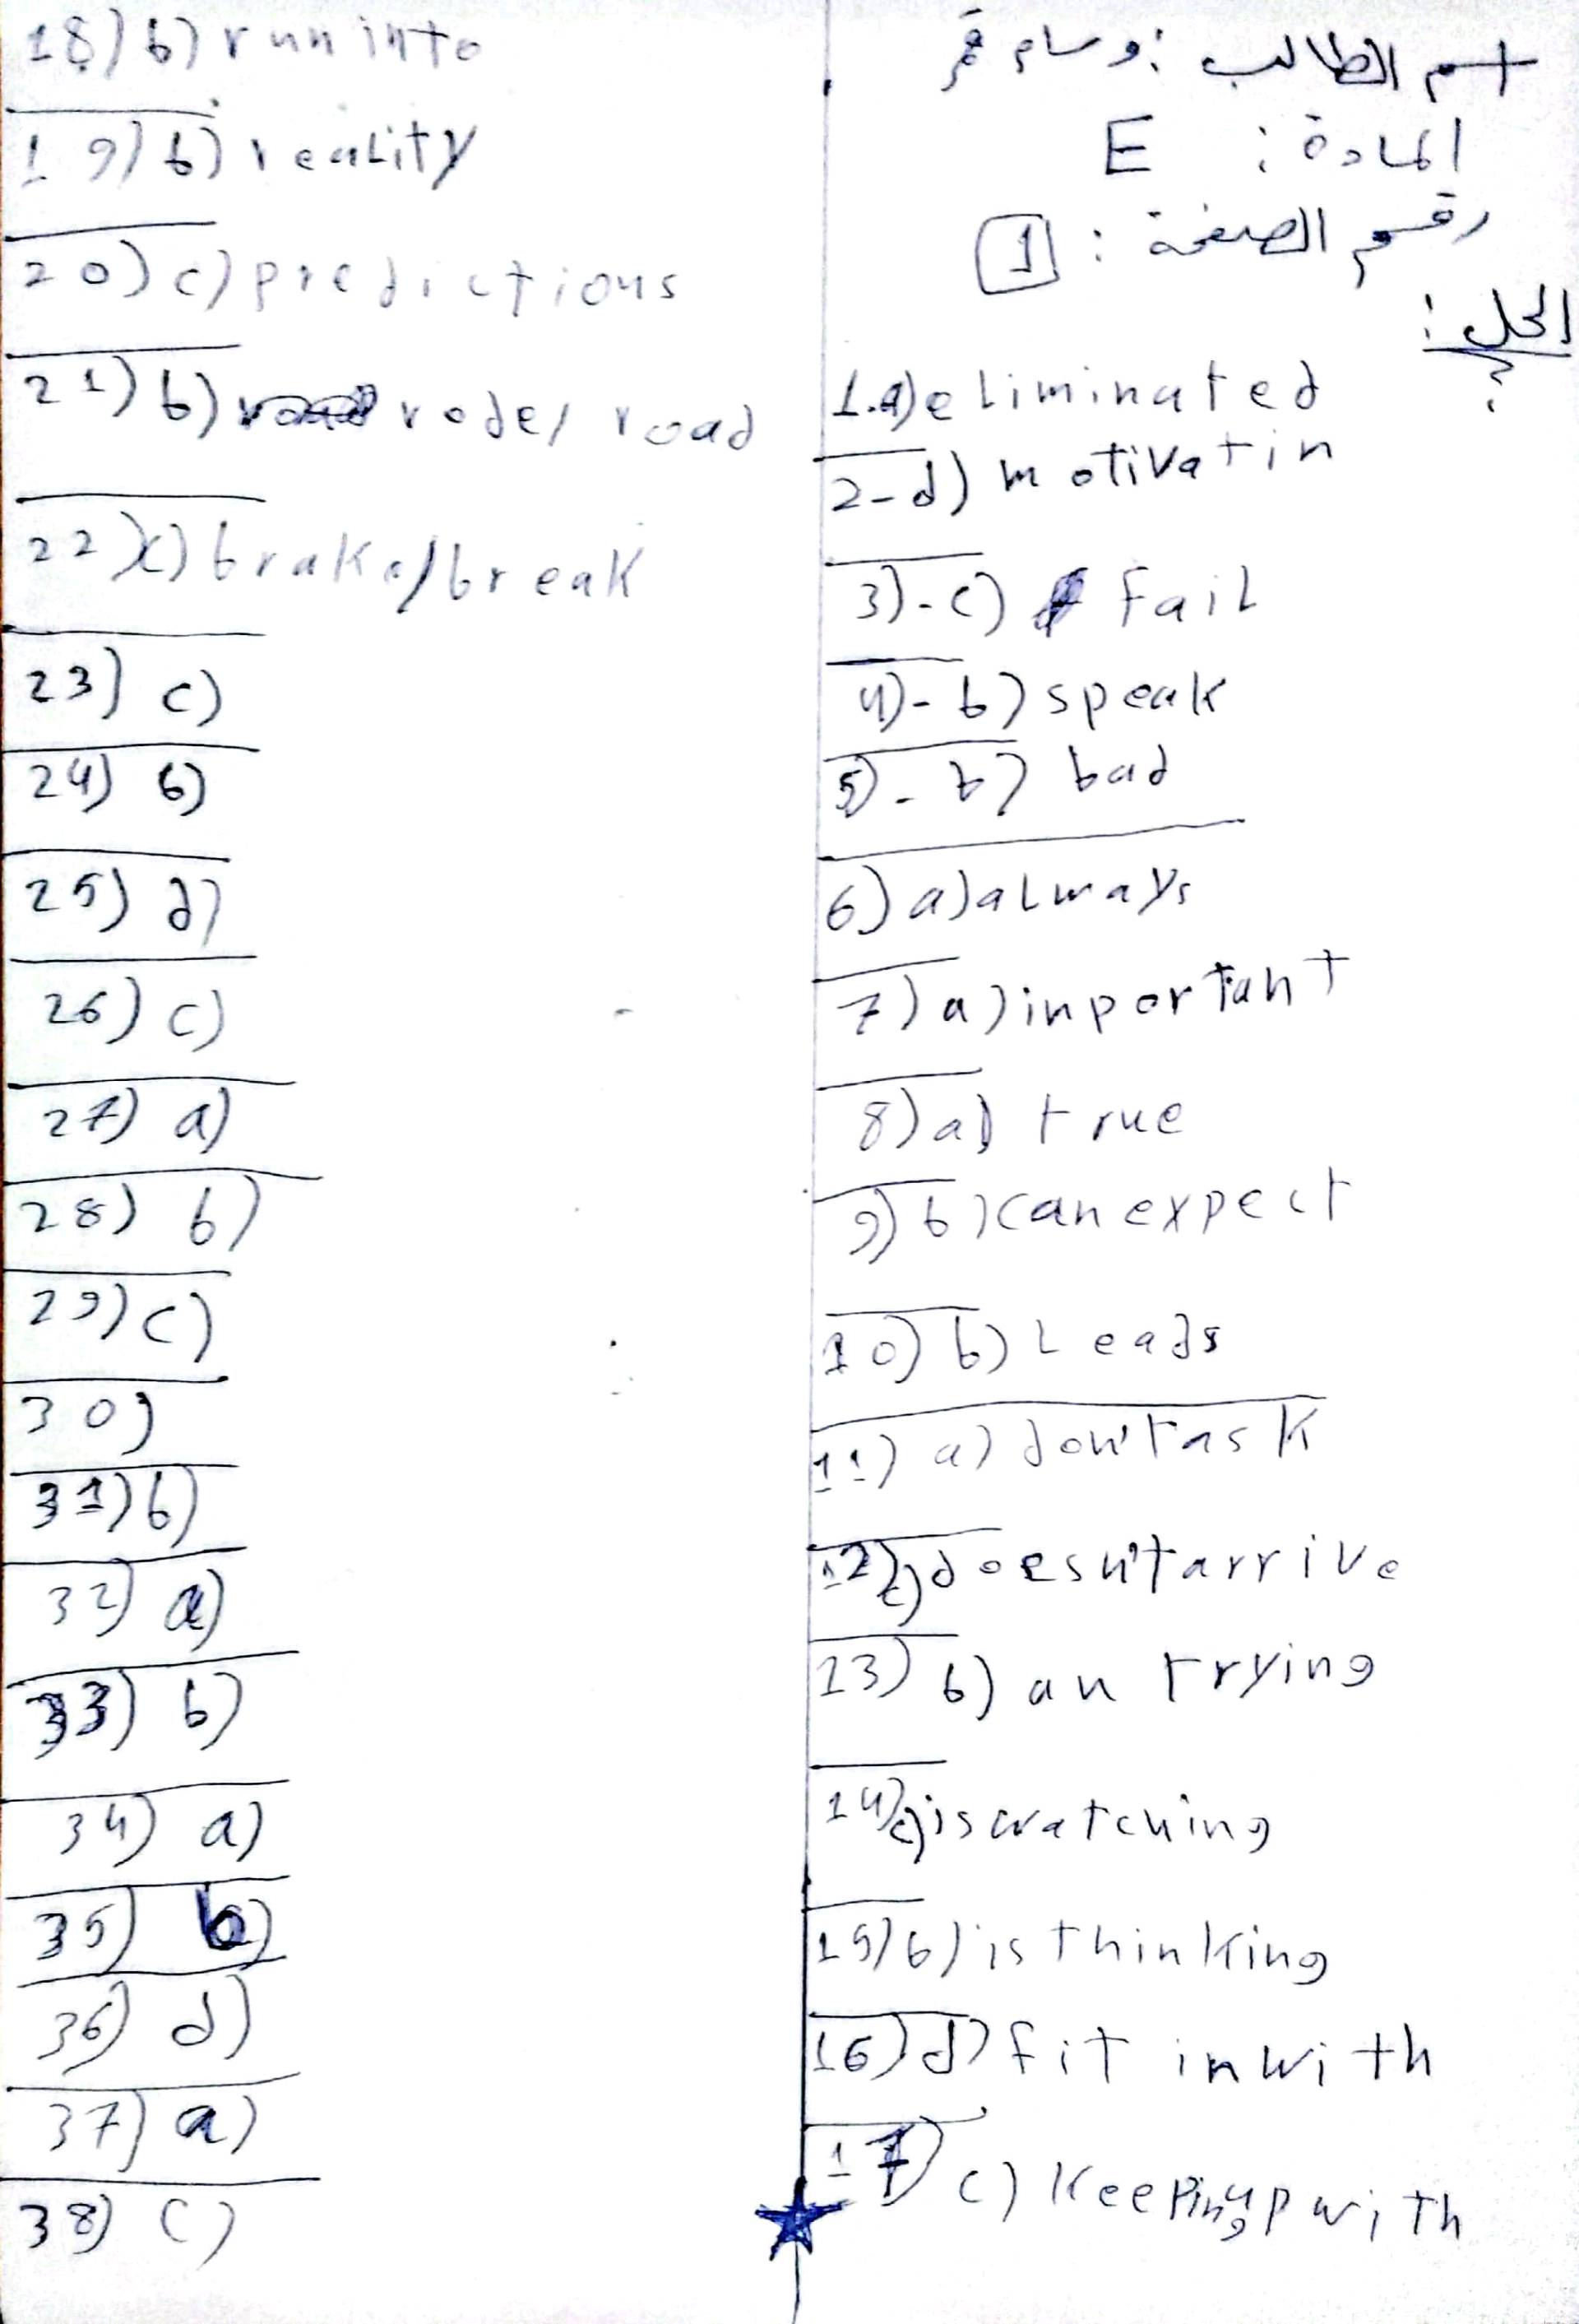 اسم الطالب : وسام قمر
المادة : E
رقم الصفحة : 1
الحل :
1.a) eliminated
2-d) motivatin
3)-c) Fail
4)-b) speak
5)-b) bad
6) a) always
7) a) inportant
8) a) true
9) b) can expect
10) b) Leads
11) a) don't ask
12) c) doesn't arrive
13) b) an trying
14) c) is watching
15) b) is thinking
16) d) fit in with
17) c) Keeping up with
18) b) run into
19) b) reality
20) c) predictions
21) b) rode/ road
22) c) brake/break
23) c)
24) b)
25) d)
26) c)
27) a)
28) b)
29) c)
30)
31) b)
32) a)
33) b)
34) a)
35) b)
36) d)
37) a)
38) c)